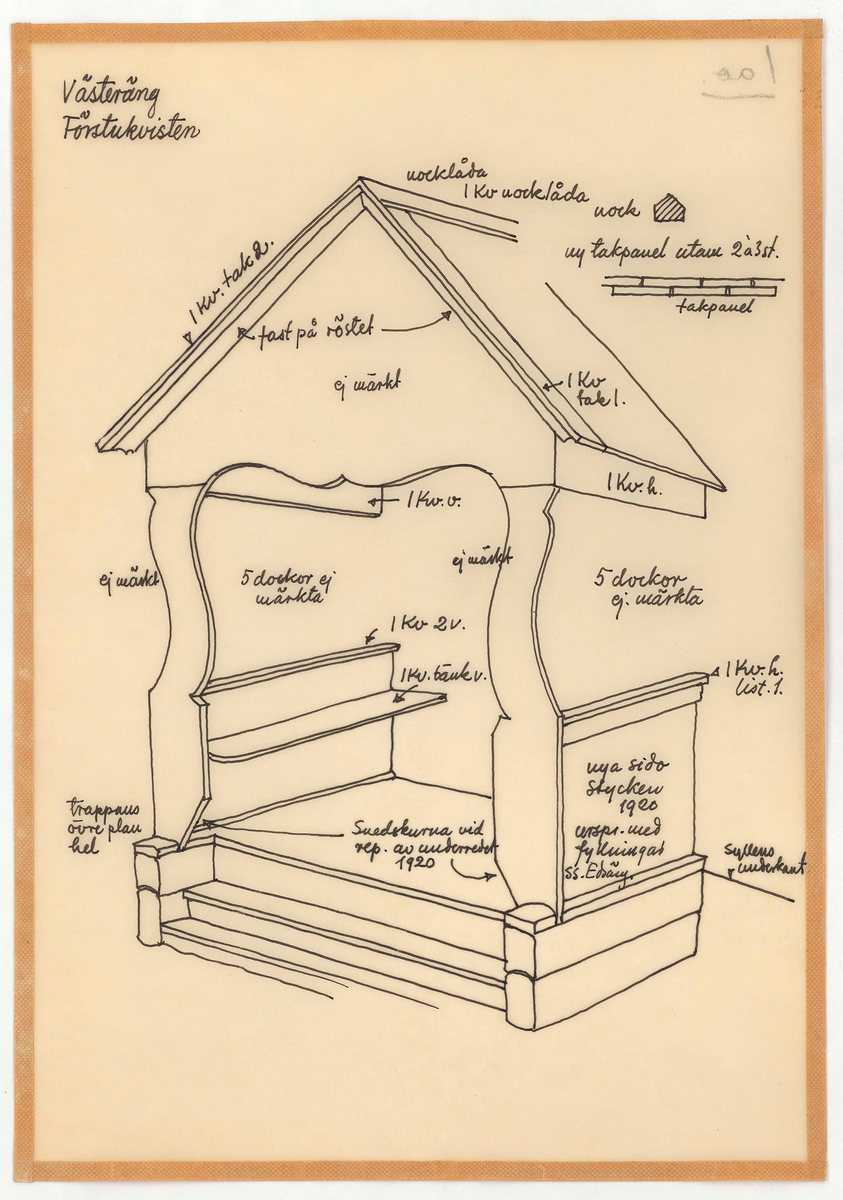 Västeräng
Förstukvisten
nocklåda
1 Kv nocklåda
nock
ny takpanel utau 2 à 3 st.
takpanel
1 Kv. tak 2.
fast på röstet
ej märkt
1 Kv
tak 1.
1 Kv. h.
1 Kv. v.
ej märkt
5 dockor ej
märkta
ej märkt
5 dockor
ej. märkta
1 Kv 2 v.
1 Kv. bänk v.
1 Kv. h.
list. 1.
nya sido
stycken
1920
urspr. med
fyllningar
ss.
trappans
övre plan
hel
Snedskurna vid
rep. av underredet
1920
syllens
underkant